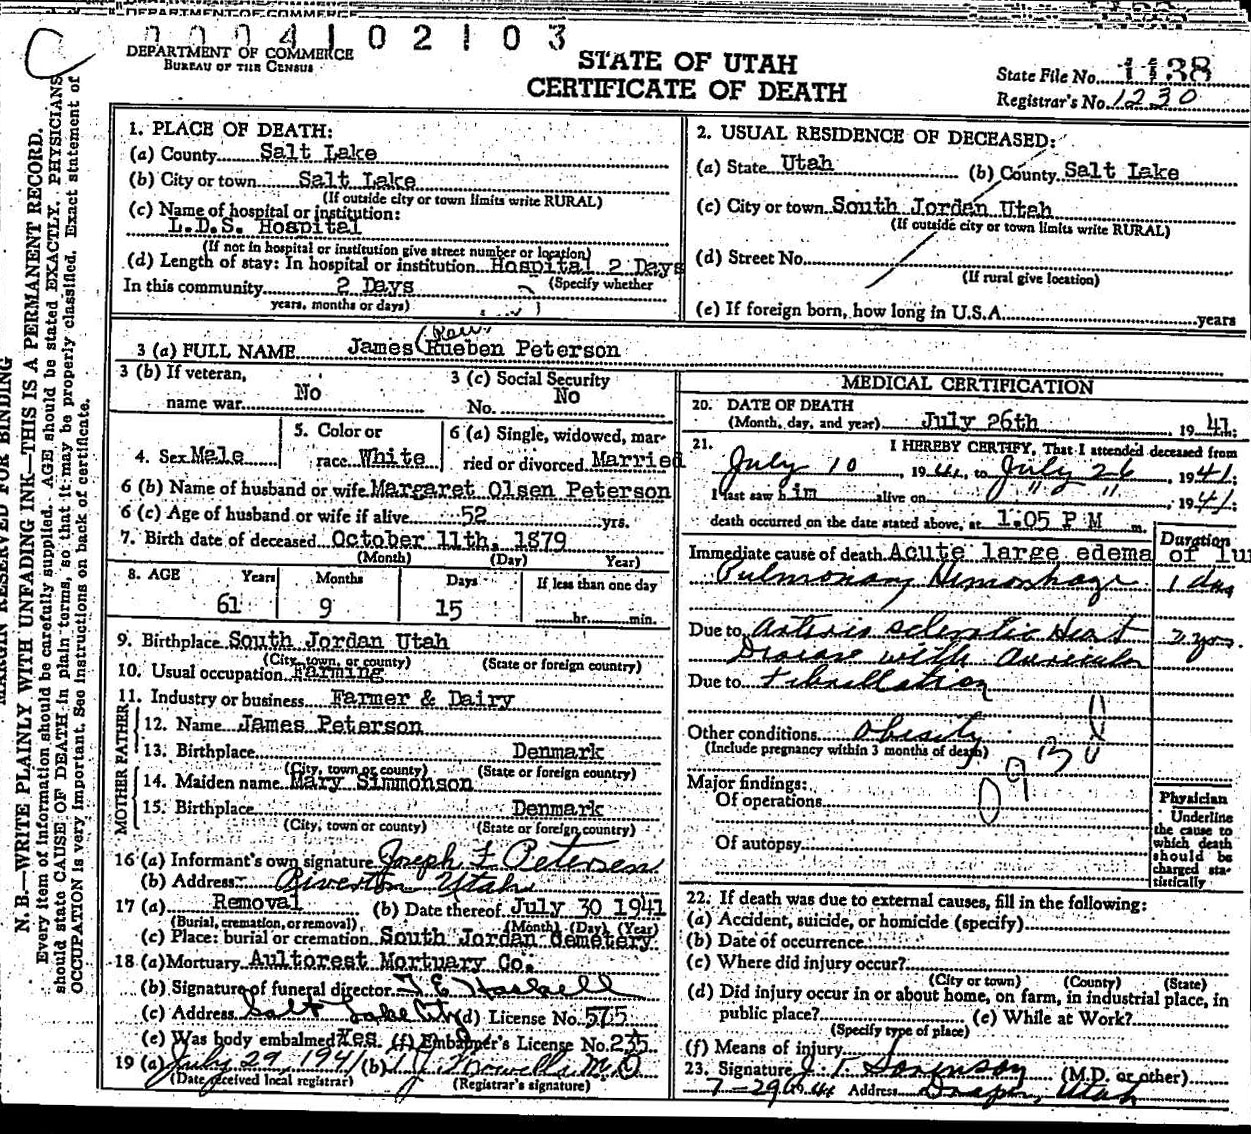 DEPARTMENT OF COMMERCE
C
0 0 0 4 1 0 2 1 0 3
DEPARTMENT OF COMMERCE
BUREAU OF THE CENSUS
STATE OF UTAH
CERTIFICATE OF DEATH
State File No. 1138
Registrar's No. 1230
MARGIN RESERVED FOR BINDING
N. B.—WRITE PLAINLY WITH UNFADING INK—THIS IS A PERMANENT RECORD.
Every item of information should be carefully supplied. AGE should be stated EXACTLY. PHYSICIANS
should state CAUSE OF DEATH in plain terms, so that it may be properly classified. Exact statement of
OCCUPATION is very important. See instructions on back of certificate.
1. PLACE OF DEATH:
(a) County Salt Lake
(b) City or town Salt Lake
(If outside city or town limits write RURAL)
(c) Name of hospital or institution:
L.D.S. Hospital
(If not in hospital or institution give street number or location)
(d) Length of stay: In hospital or institution Hospital 2 Days
(Specify whether
In this community 2 Days
years, months or days)
2. USUAL RESIDENCE OF DECEASED:
(a) State Utah (b) County Salt Lake
(c) City or town South Jordan Utah
(If outside city or town limits write RURAL)
(d) Street No.
(If rural give location)
(e) If foreign born, how long in U.S.A. years
3 (a) FULL NAME James Rueben Peterson
3 (b) If veteran,
name war No
3 (c) Social Security
No. No
4. Sex Male
5. Color or
race White
6 (a) Single, widowed, mar-
ried or divorced Married
6 (b) Name of husband or wife Margaret Olsen Peterson
6 (c) Age of husband or wife if alive 52 yrs.
7. Birth date of deceased October 11th, 1879
(Month) (Day) Year)
8. AGE Years Months Days If less than one day
61 9 15 hr. min.
9. Birthplace South Jordan Utah
(City, town, or county) (State or foreign country)
10. Usual occupation Farming
11. Industry or business Farmer & Dairy
FATHER
12. Name James Peterson
13. Birthplace Denmark
(City, town or county) (State or foreign country)
MOTHER
14. Maiden name Mary Simmonson
15. Birthplace Denmark
(City, town or county) (State or foreign country)
16 (a) Informant's own signature Joseph F Petersen
(b) Address Riverton Utah
17 (a) Removal (b) Date thereof July 30 1941
(Burial, cremation, or removal) (Month) (Day) (Year)
(c) Place: burial or cremation South Jordan Cemetery
18 (a) Mortuary Aultorest Mortuary Co.
(b) Signature of funeral director
(c) Address Salt Lake City (d) License No. 575
(e) Was body embalmed Yes (f) Embalmer's License No. 235
19 (a) July 29, 1941 (b) M.D.
(Date received local registrar) (Registrar's signature)
MEDICAL CERTIFICATION
20. DATE OF DEATH
(Month, day, and year) July 26th, 1941:
21. I HEREBY CERTIFY, That I attended deceased from
July 10, 1941, to July 26, 1941:
I last saw him alive on " ", 1941:
death occurred on the date stated above, at 1.05 P M m.
Duration
Immediate cause of death Acute large edema of lun
Pulmonary Hemorrhage 1 day
Due to Arterio sclerotic Heart
Disease with auricular
Due to Fibrillation
Other conditions Obesity
(Include pregnancy within 3 months of death)
093
Major findings:
Of operations
Of autopsy
Physician
Underline
the cause to
which death
should be
charged sta-
tistically
22. If death was due to external causes, fill in the following:
(a) Accident, suicide, or homicide (specify)
(b) Date of occurrence
(c) Where did injury occur?
(City or town) (County) (State)
(d) Did injury occur in or about home, on farm, in industrial place, in
public place? (e) While at Work?
(Specify type of place)
(f) Means of injury
23. Signature J. T. Sorenson (M.D. or other)
7-29 1941 Address Draper, Utah